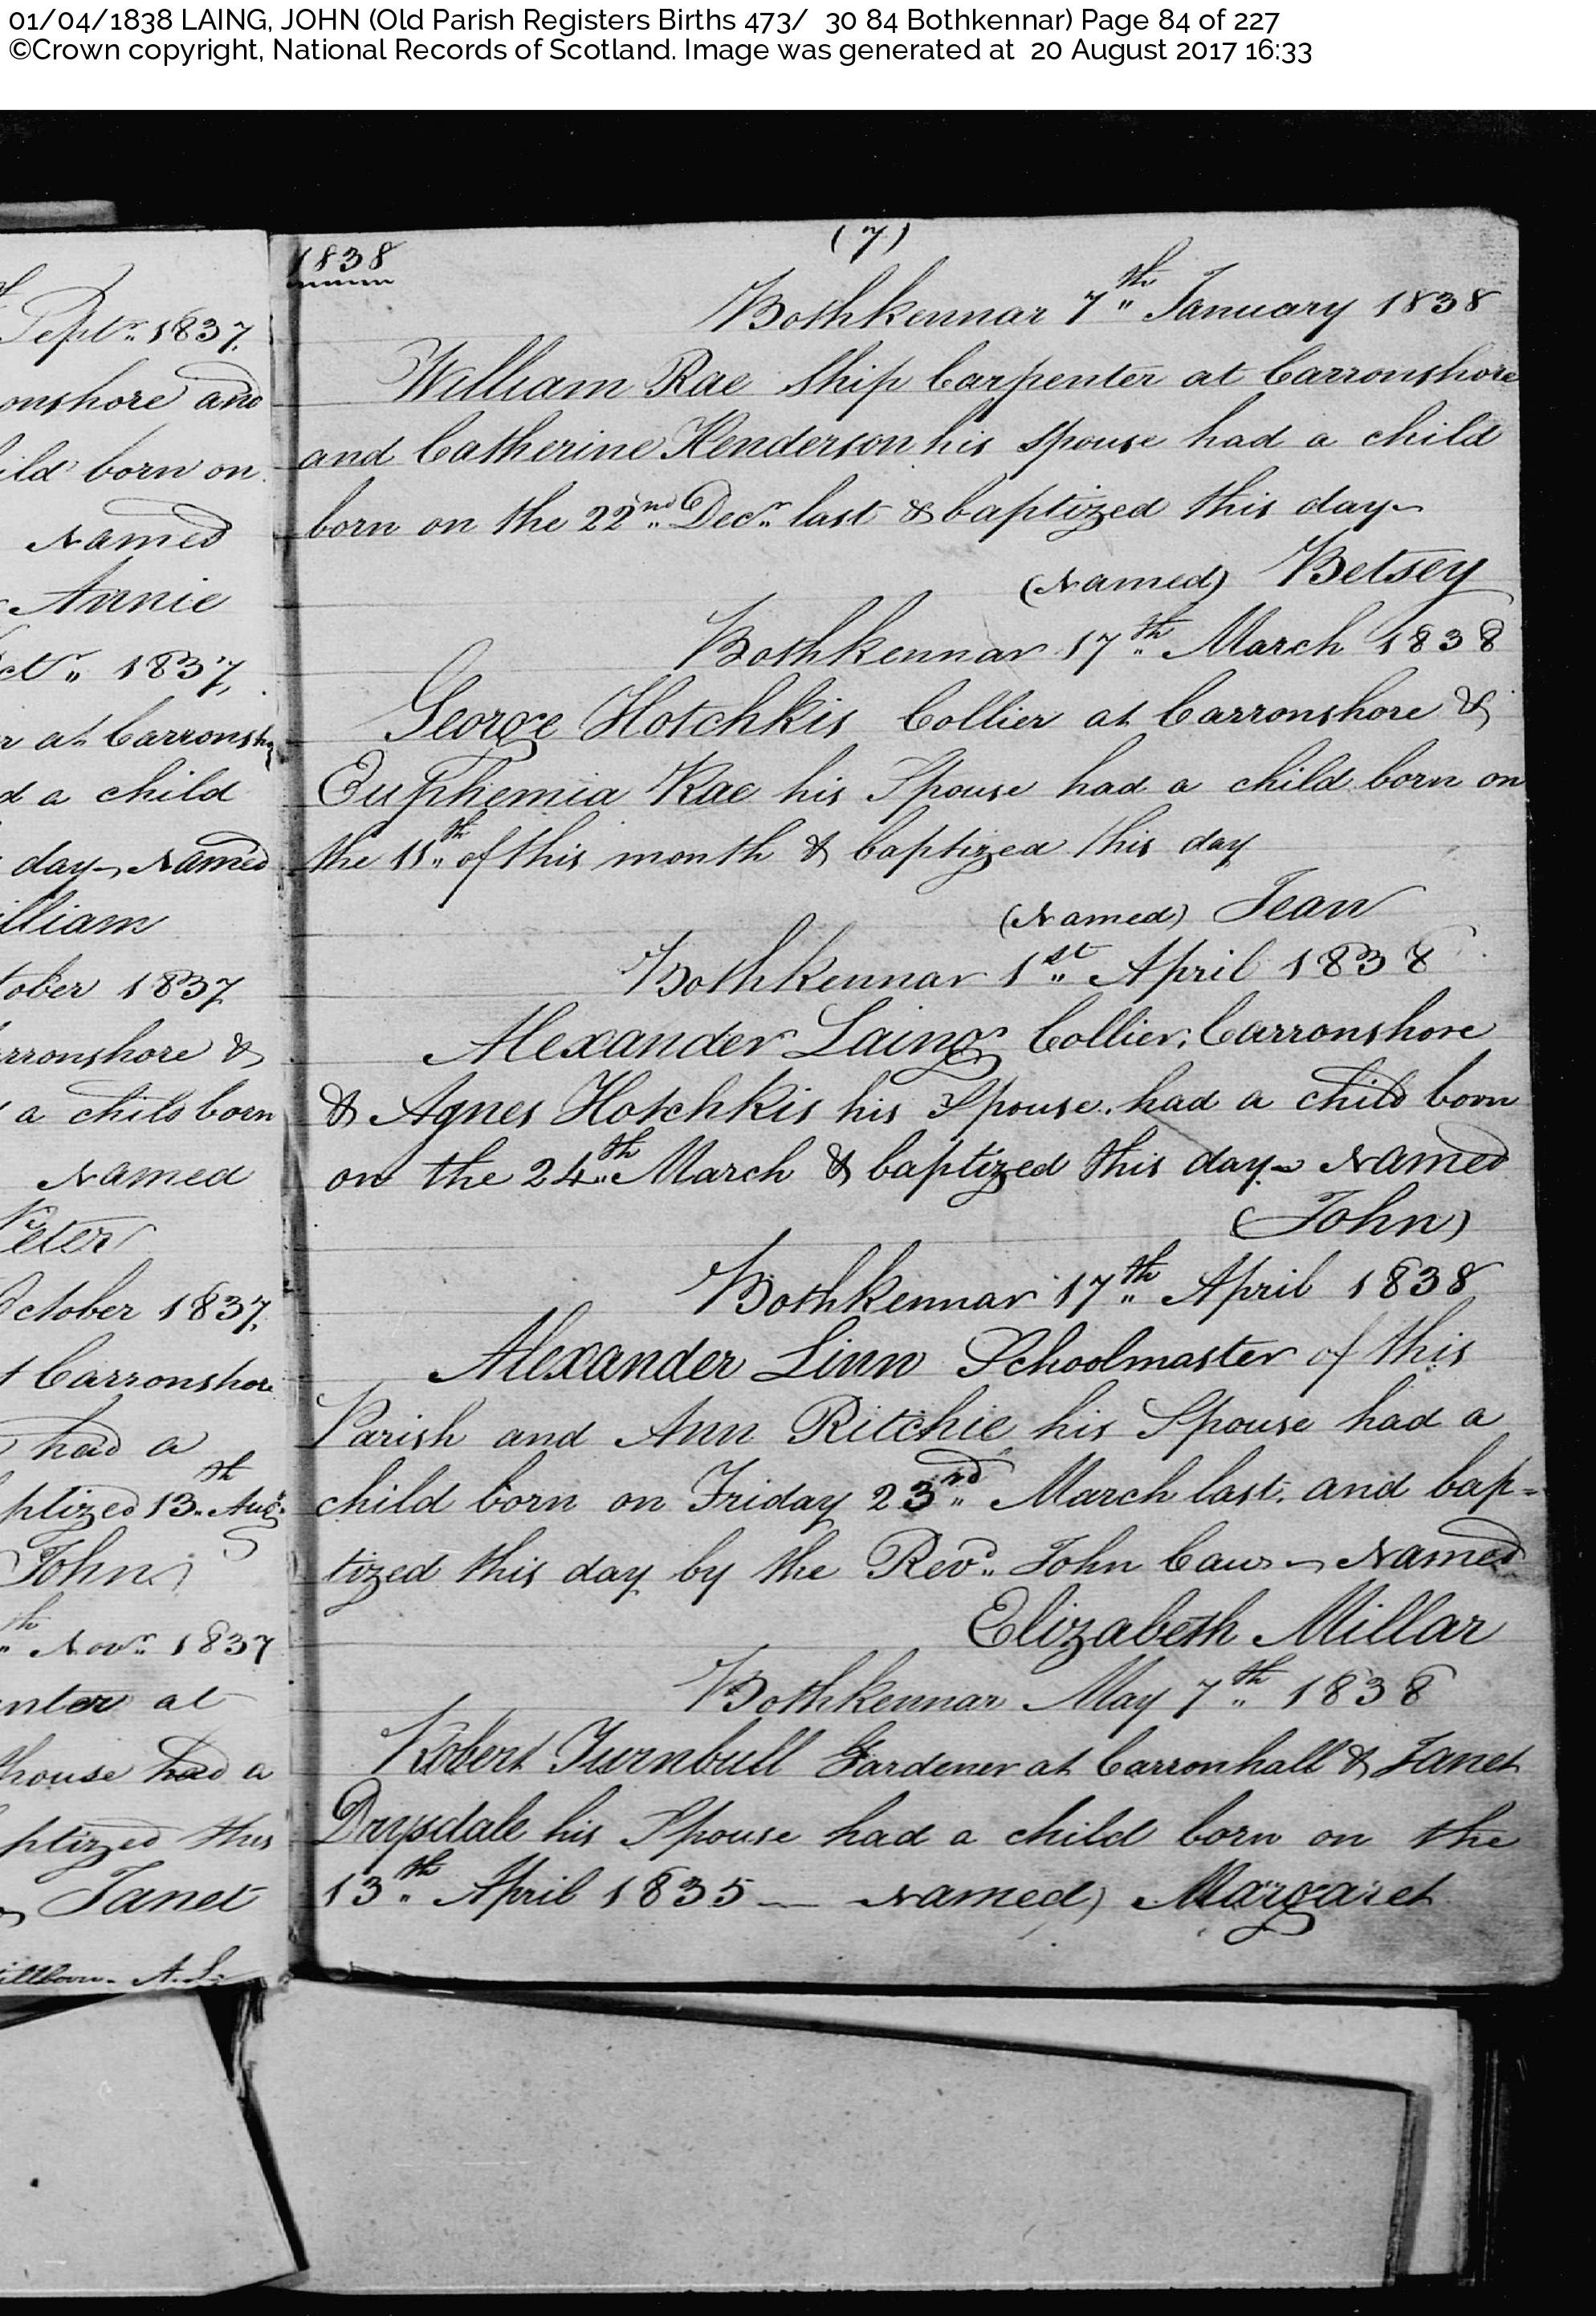 01/04/1838 LAING, JOHN (Old Parish Registers Births 473/ 30 84 Bothkennar) Page 84 of 227
©Crown copyright, National Records of Scotland. Image was generated at 20 August 2017 16:33
Septr. 1837.
onshore and
ild born on
Named
Annie
ctr. 1837,
r at Carronsh
d a child
day Named
illiam
tober 1837
arronshore &
a child born
Named
Peter
October 1837,
t Carronshore
had a
ptized 13th Augt.
John)
th Novr. 1837
nter at
Spouse had a
ptized this
Janet
1838
(7)
Bothkennar 7th January 1838
William Rae Ship Carpenter at Carronshore
and Catherine Henderson his spouse had a child
born on the 22nd Decr. last & baptized this day
(Named) Betsey
Bothkennar 17th March 1838
George Hotchkis Collier at Carronshore &
Euphemia Rae his Spouse had a child born on
the 11th of this month & baptized this day
(Named) Jean
Bothkennar 1st April 1838
Alexander Laing Collier, Carronshore
& Agnes Hotchkis his Spouse had a child born
on the 24th March & baptized this day Named
(John)
Bothkennar 17th April 1838
Alexander Linn Schoolmaster of this
Parish and Ann Ritchie his Spouse had a
child born on Friday 23rd March last, and bap=
tized this day by the Revd. John Caw Named
Elizabeth Millar
Bothkennar May 7th 1838
Robert Turnbull Gardener at Carronhall & Janet
Drysdale his Spouse had a child born on the
13th April 1835 — Named) Margaret